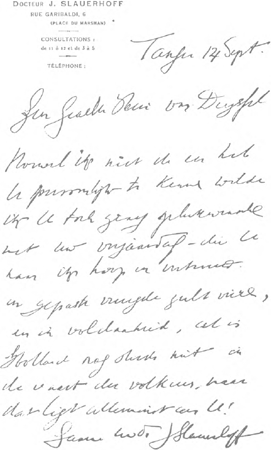 DOCTEUR J. SLAUERHOFF
RUE GARIBALDI, 6
(PLACE DU MARSHAN)
CONSULTATIONS :
de 11 à 12 et de 3 à 5
TÉLÉPHONE :
Tanger 14 Sept.
Zeer Geachte Heer van Deyssel
Hoewel ik niet de eer heb
U persoonlijk te kennen wilde
ik U toch graag gelukwenschen
met Uw verjaardag - die U
naar ik hoop en vertrouw
in gepaste vreugde zult vieren,
en in voldaanheid, al is
Holland nog steeds niet in
de vaart der volkeren, maar
dat ligt allerminst aan U!
J Slauerhoff